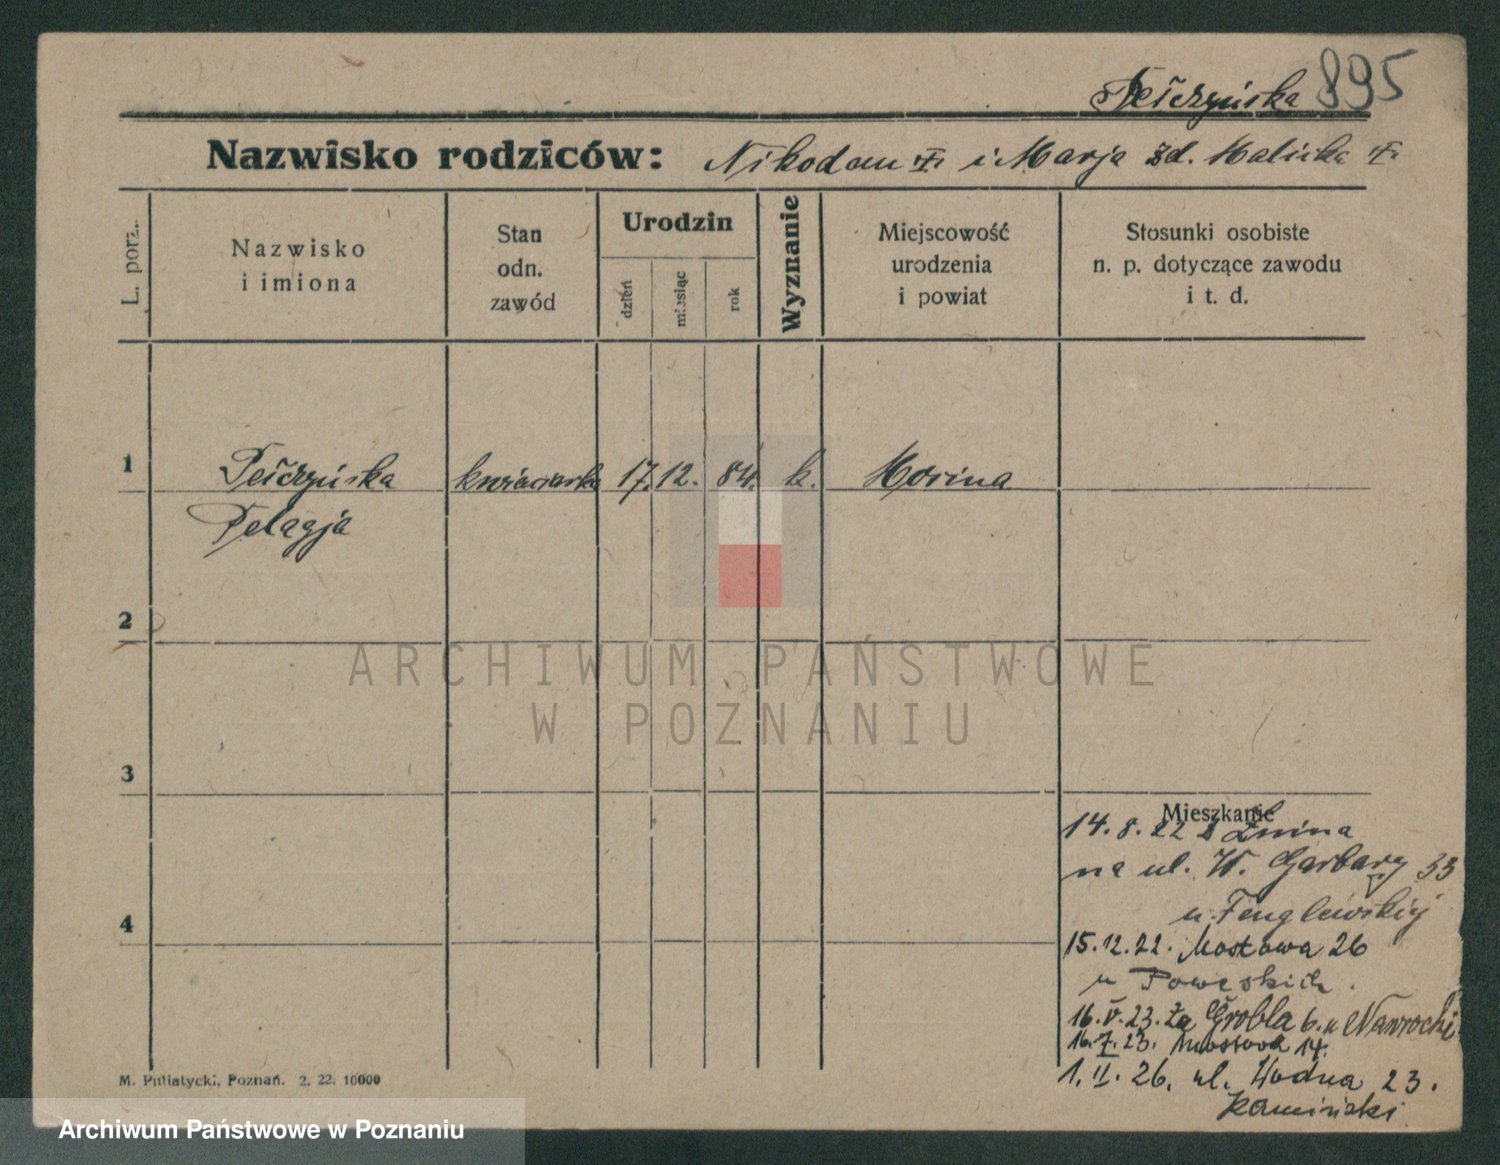 Pełczyńska 895
Nazwisko rodziców: Nikodem † i Marja zd. Malicka †
L. porz.
Nazwisko
i imiona
Stan
odn.
zawód
Urodzin
dzień
miesiąc
rok
Wyznanie
Miejscowość
urodzenia
i powiat
Stosunki osobiste
n. p. dotyczące zawodu
i t. d.
1 Pełczyńska kwiaciarka 17. 12. 84. k. Mosina
Pelagja
2
3
4
ARCHIWUM PAŃSTWOWE
W POZNANIU
Mieszkanie
14. 8. 22 z Żnina
na ul. W. Garbary 33
u Fenglewskiej
15. 12. 22. Mostowa 26
u Powęskich.
16. V. 23. Za Groblą 6. u Nawrocki
16. X. 23. Mostowa 14.
1. II. 26. ul. Wodna 23.
Kamiński
M. Putiatycki, Poznań. 2. 22. 10000
Archiwum Państwowe w Poznaniu